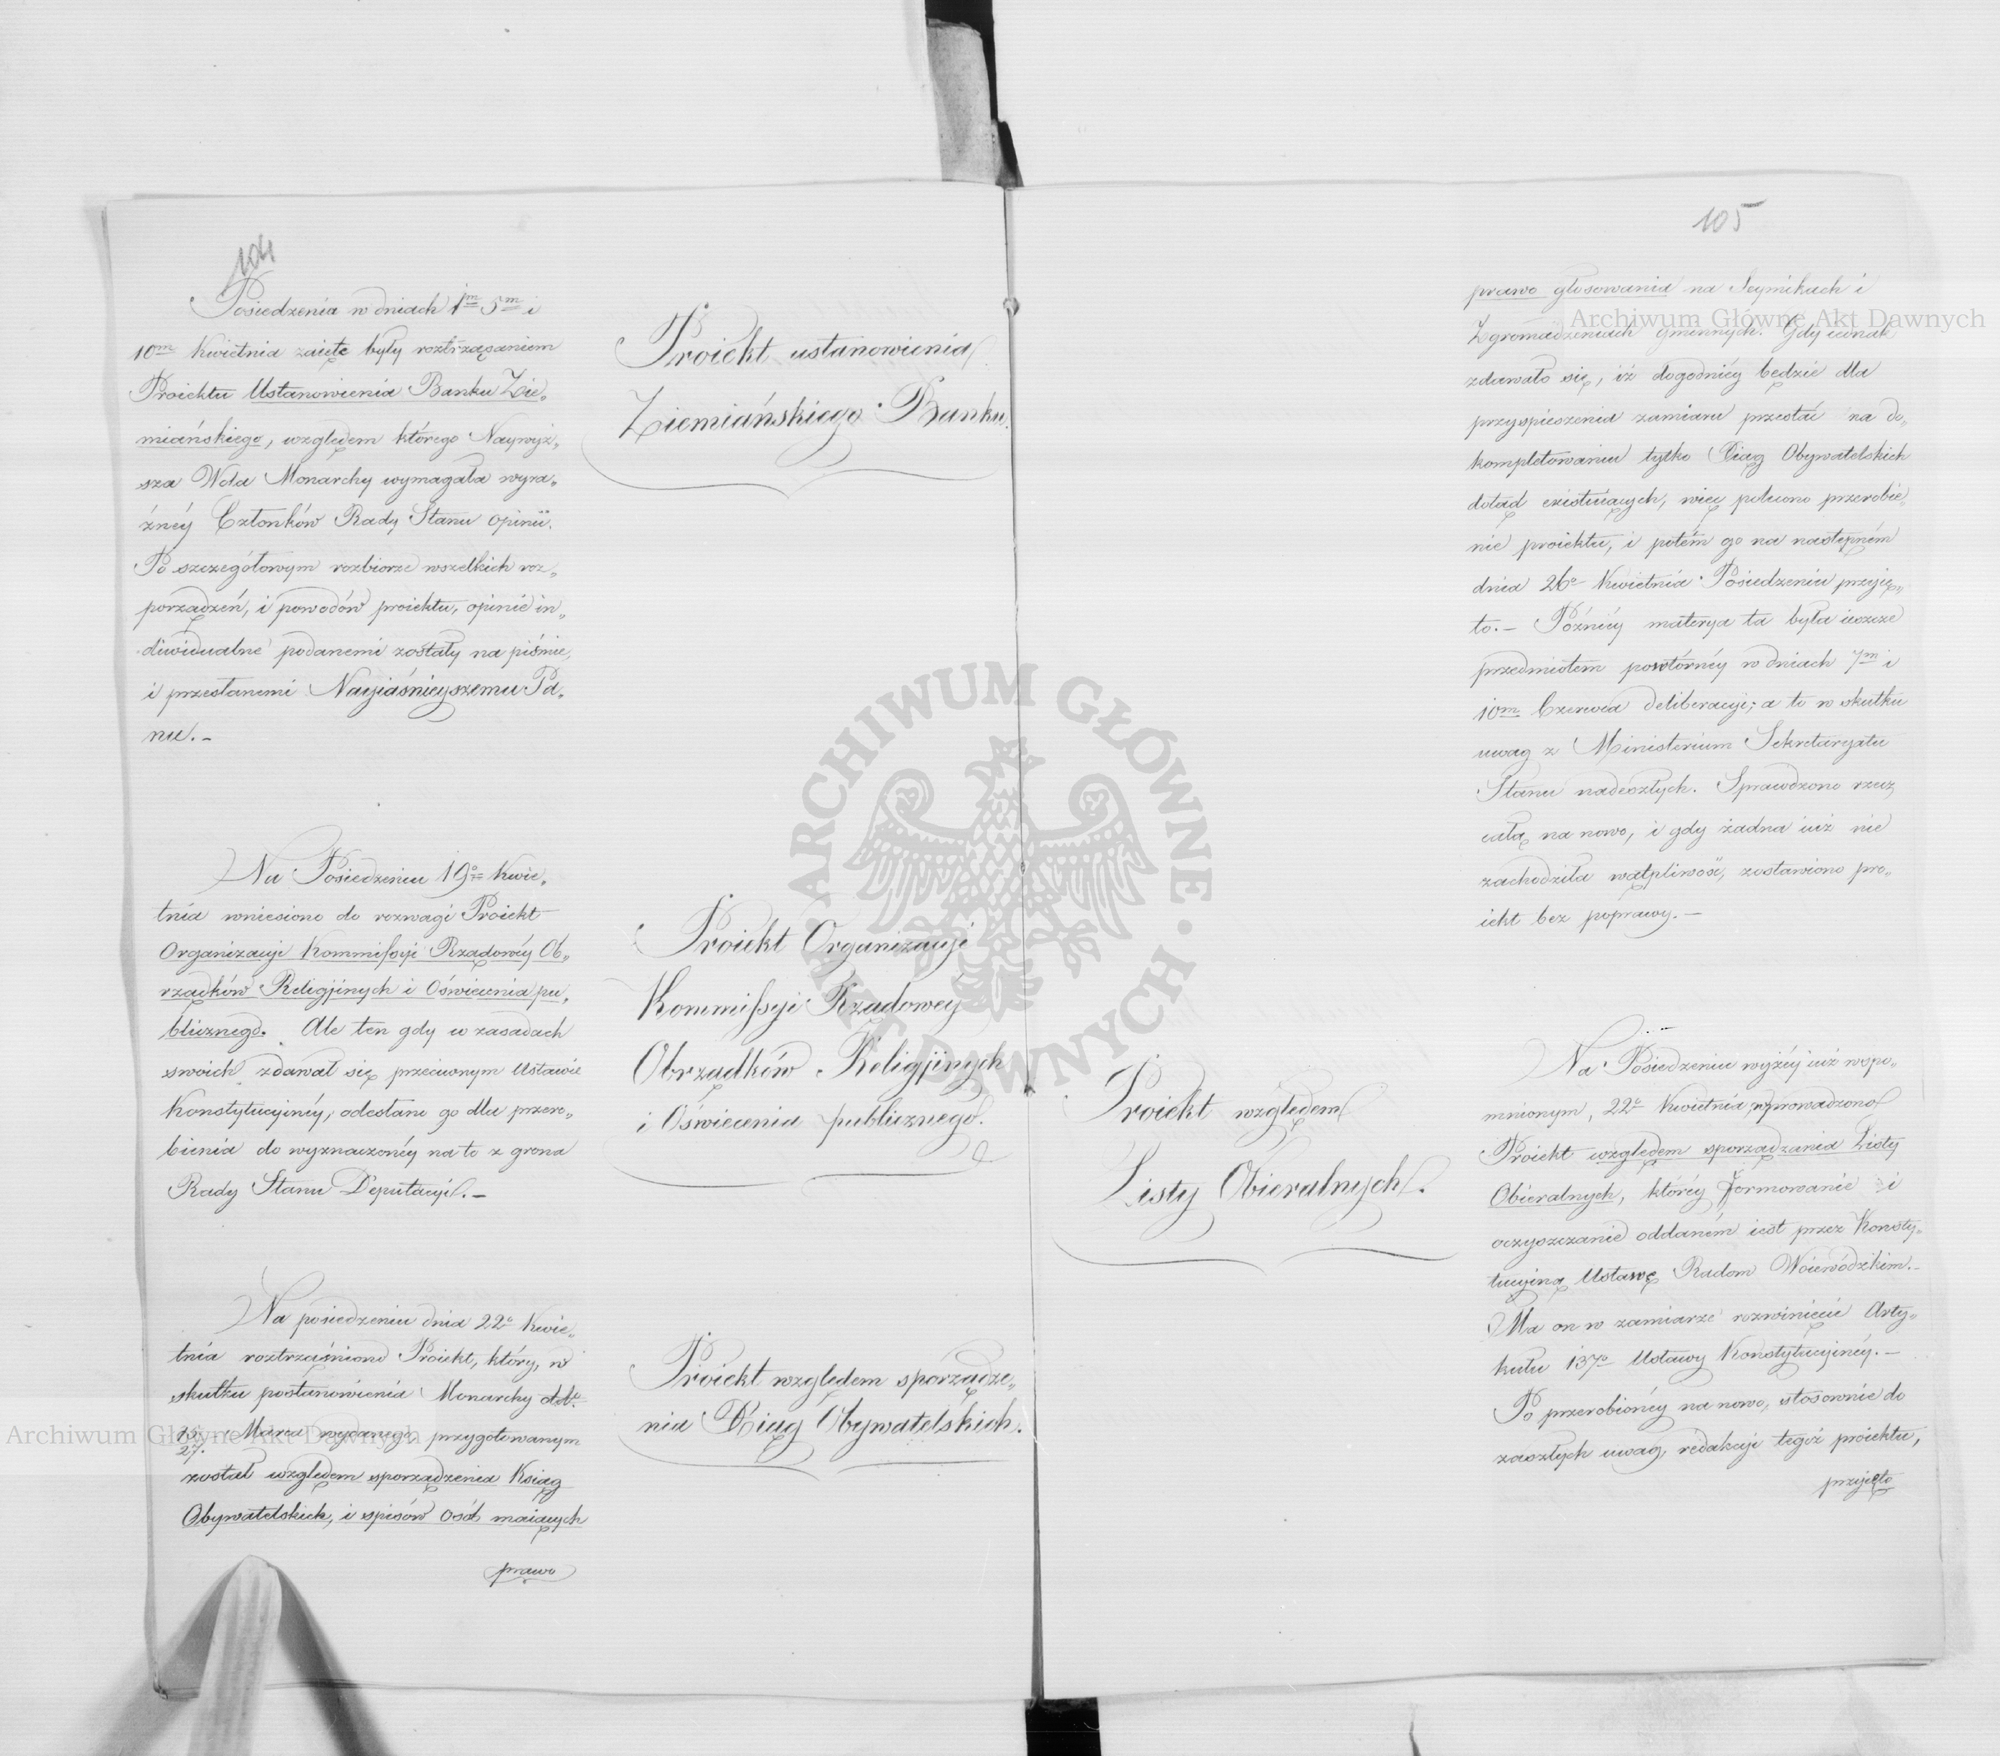 104
Posiedzenia w dniach 1m 5m i
10m Kwietnia zaięte były roztrząsaniem
Proiektu Ustanowienia Banku Zie„
miańskiego, względem którego Naywyż„
sza Wola Monarchy wymagała wyra„
źnéy Członków Rady Stanu opinii.
Po szczegółowym rozbiorze wszelkich roz„
porządzeń, i powodów proiektu, opinie in„
diwidualne podanemi zostały na piśmie,
i przesłanemi Nayiaśnieyszemu Pa„
nu.–
Proiekt ustanowienia
Ziemiańskiego Banku.
Na Posiedzeniu 19o Kwie„
tnia wniesiono do rozwagi Proiekt
Organizacyi Kommissyi Rządowéy Ob„
rządków Religijnych i Oświecenia pu„
blicznego. Ale ten gdy w zasadach
swoich zdawał się przeciwnym Ustawie
Konstytucyinéy, odesłano go dla przero„
bienia do wyznaczonéy na to z grona
Rady Stanu Deputacyi.–
Proiekt Organizacyi
Kommissyi Rządowey
Obrządków Religijnych
i Oświecenia publicznego.
Na posiedzeniu dnia 22o Kwie„
tnia roztrząśniono Proiekt, który, w
skutku postanowienia Monarchy
15/27. Marca wydanego, przygotowanym
został względem sporządzenia Ksiąg
Obywatelskich, i spisów osób maiących
prawo
Proiekt względem sporządze„
nia Xiąg Obywatelskich.
105
prawo głosowania na Seymikach i
Zgromadzeniach gminnych. Gdy iednak
zdawało się, iż dogodniéy będzie dla
przyspieszenia zamiaru przestać na do„
kompletowaniu tylko Xiąg Obywatelskich
dotąd existuiących, więc polecono przerobie„
nie proiektu, i potém go na następném
dnia 26o Kwietnia Posiedzeniu przyię„
to.– Późniéy materya ta była ieszcze
przedmiotem powtórnéy w dniach 7m i
10m Czerwca deliberacyi; a to w skutku
uwag z Ministerium Sekretaryatu
Stanu nadeszłych. Sprawdzono rzecz
całą na nowo, i gdy żadna iuż nie
zachodziła wątpliwość, zostawiono pro„
iekt bez poprawy.–
Proiekt względem
Listy Obieralnych.
Na Posiedzeniu wyżéy iuż wspo„
mnionym, 22o Kwietnia wprowadzono
Proiekt względem sporządzania Listy
Obieralnych, któréy formowanie i
oczyszczanie oddaném iest przez Konsty„
tucyiną Ustawę Radom Woiewódzkim.–
Ma on w zamiarze rozwinięcie Arty„
kułu 137o Ustawy Konstytucyinéy.–
Po przerobionéy na nowo, stosownie do
zaszłych uwag, redakcyi tegoż proiektu,
przyięto
Archiwum Główne Akt Dawnych
Archiwum Główne Akt Dawnych
ARCHIWUM GŁÓWNE AKT DAWNYCH